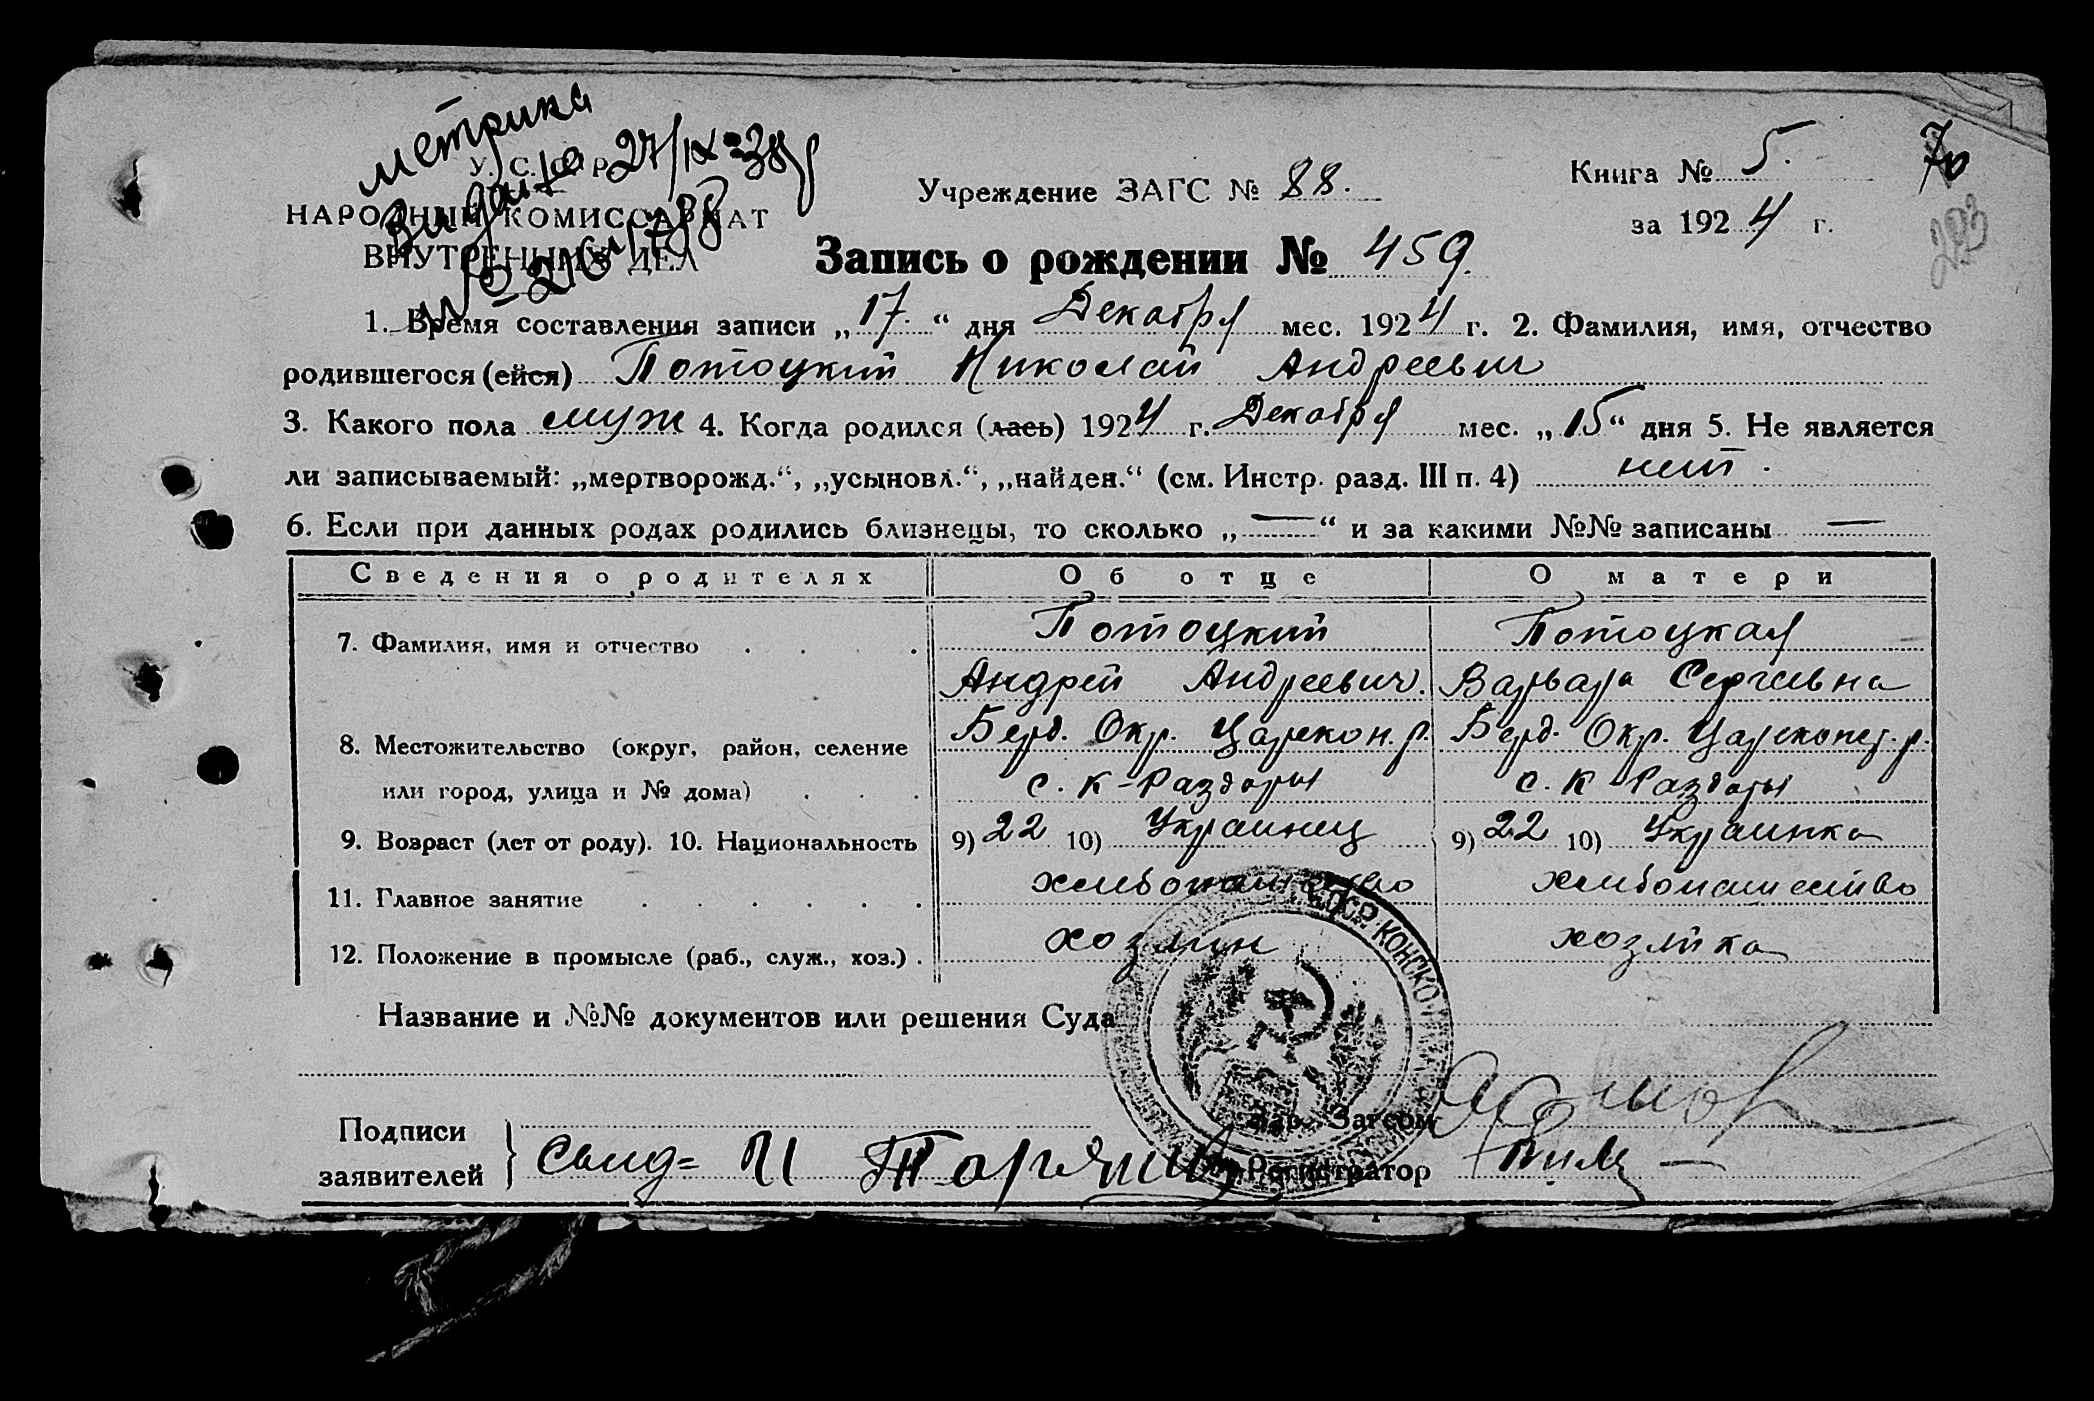 метрика
Видана 27/IX-38р
У. С. С. Р.
НАРОДНЫЙ КОМИССАРИАТ
ВНУТРЕННИХ ДЕЛ
Учреждение ЗАГС № 88.
Книга № 5.
70
за 1924 г.
293
Запись о рождении № 459.
1. Время составления записи „17.“ дня Декабря мес. 1924 г. 2. Фамилия, имя, отчество
родившегося (ейся) Потоцкий Николай Андреевич
3. Какого пола муж 4. Когда родился (лась) 1924 г. Декабря мес. „15“ дня 5. Не является
ли записываемый: „мертворожд.“, „усыновл.“, „найден.“ (см. Инстр. разд. III п. 4) нет.
6. Если при данных родах родились близнецы, то сколько „—“ и за какими №№ записаны —
Сведения о родителях Об отце О матери
7. Фамилия, имя и отчество Потоцкий Потоцкая
Андрей Андреевич. Варвара Сергеевна
8. Местожительство (округ, район, селение Берд. Окр. Царекон. р. Берд. Окр. Царекост. р.
или город, улица и № дома) с. К-Раздоры с. К-Раздоры
9. Возраст (лет от роду). 10. Национальность 9) 22 10) Украинец 9) 22 10) Украинка
11. Главное занятие хлебопашество хлебопашество
12. Положение в промысле (раб., служ., хоз.) хозяин хозяйка
Название и №№ документов или решения Суда
Подписи
заявителей } Свид= И
Зав. Загсом
Регистратор